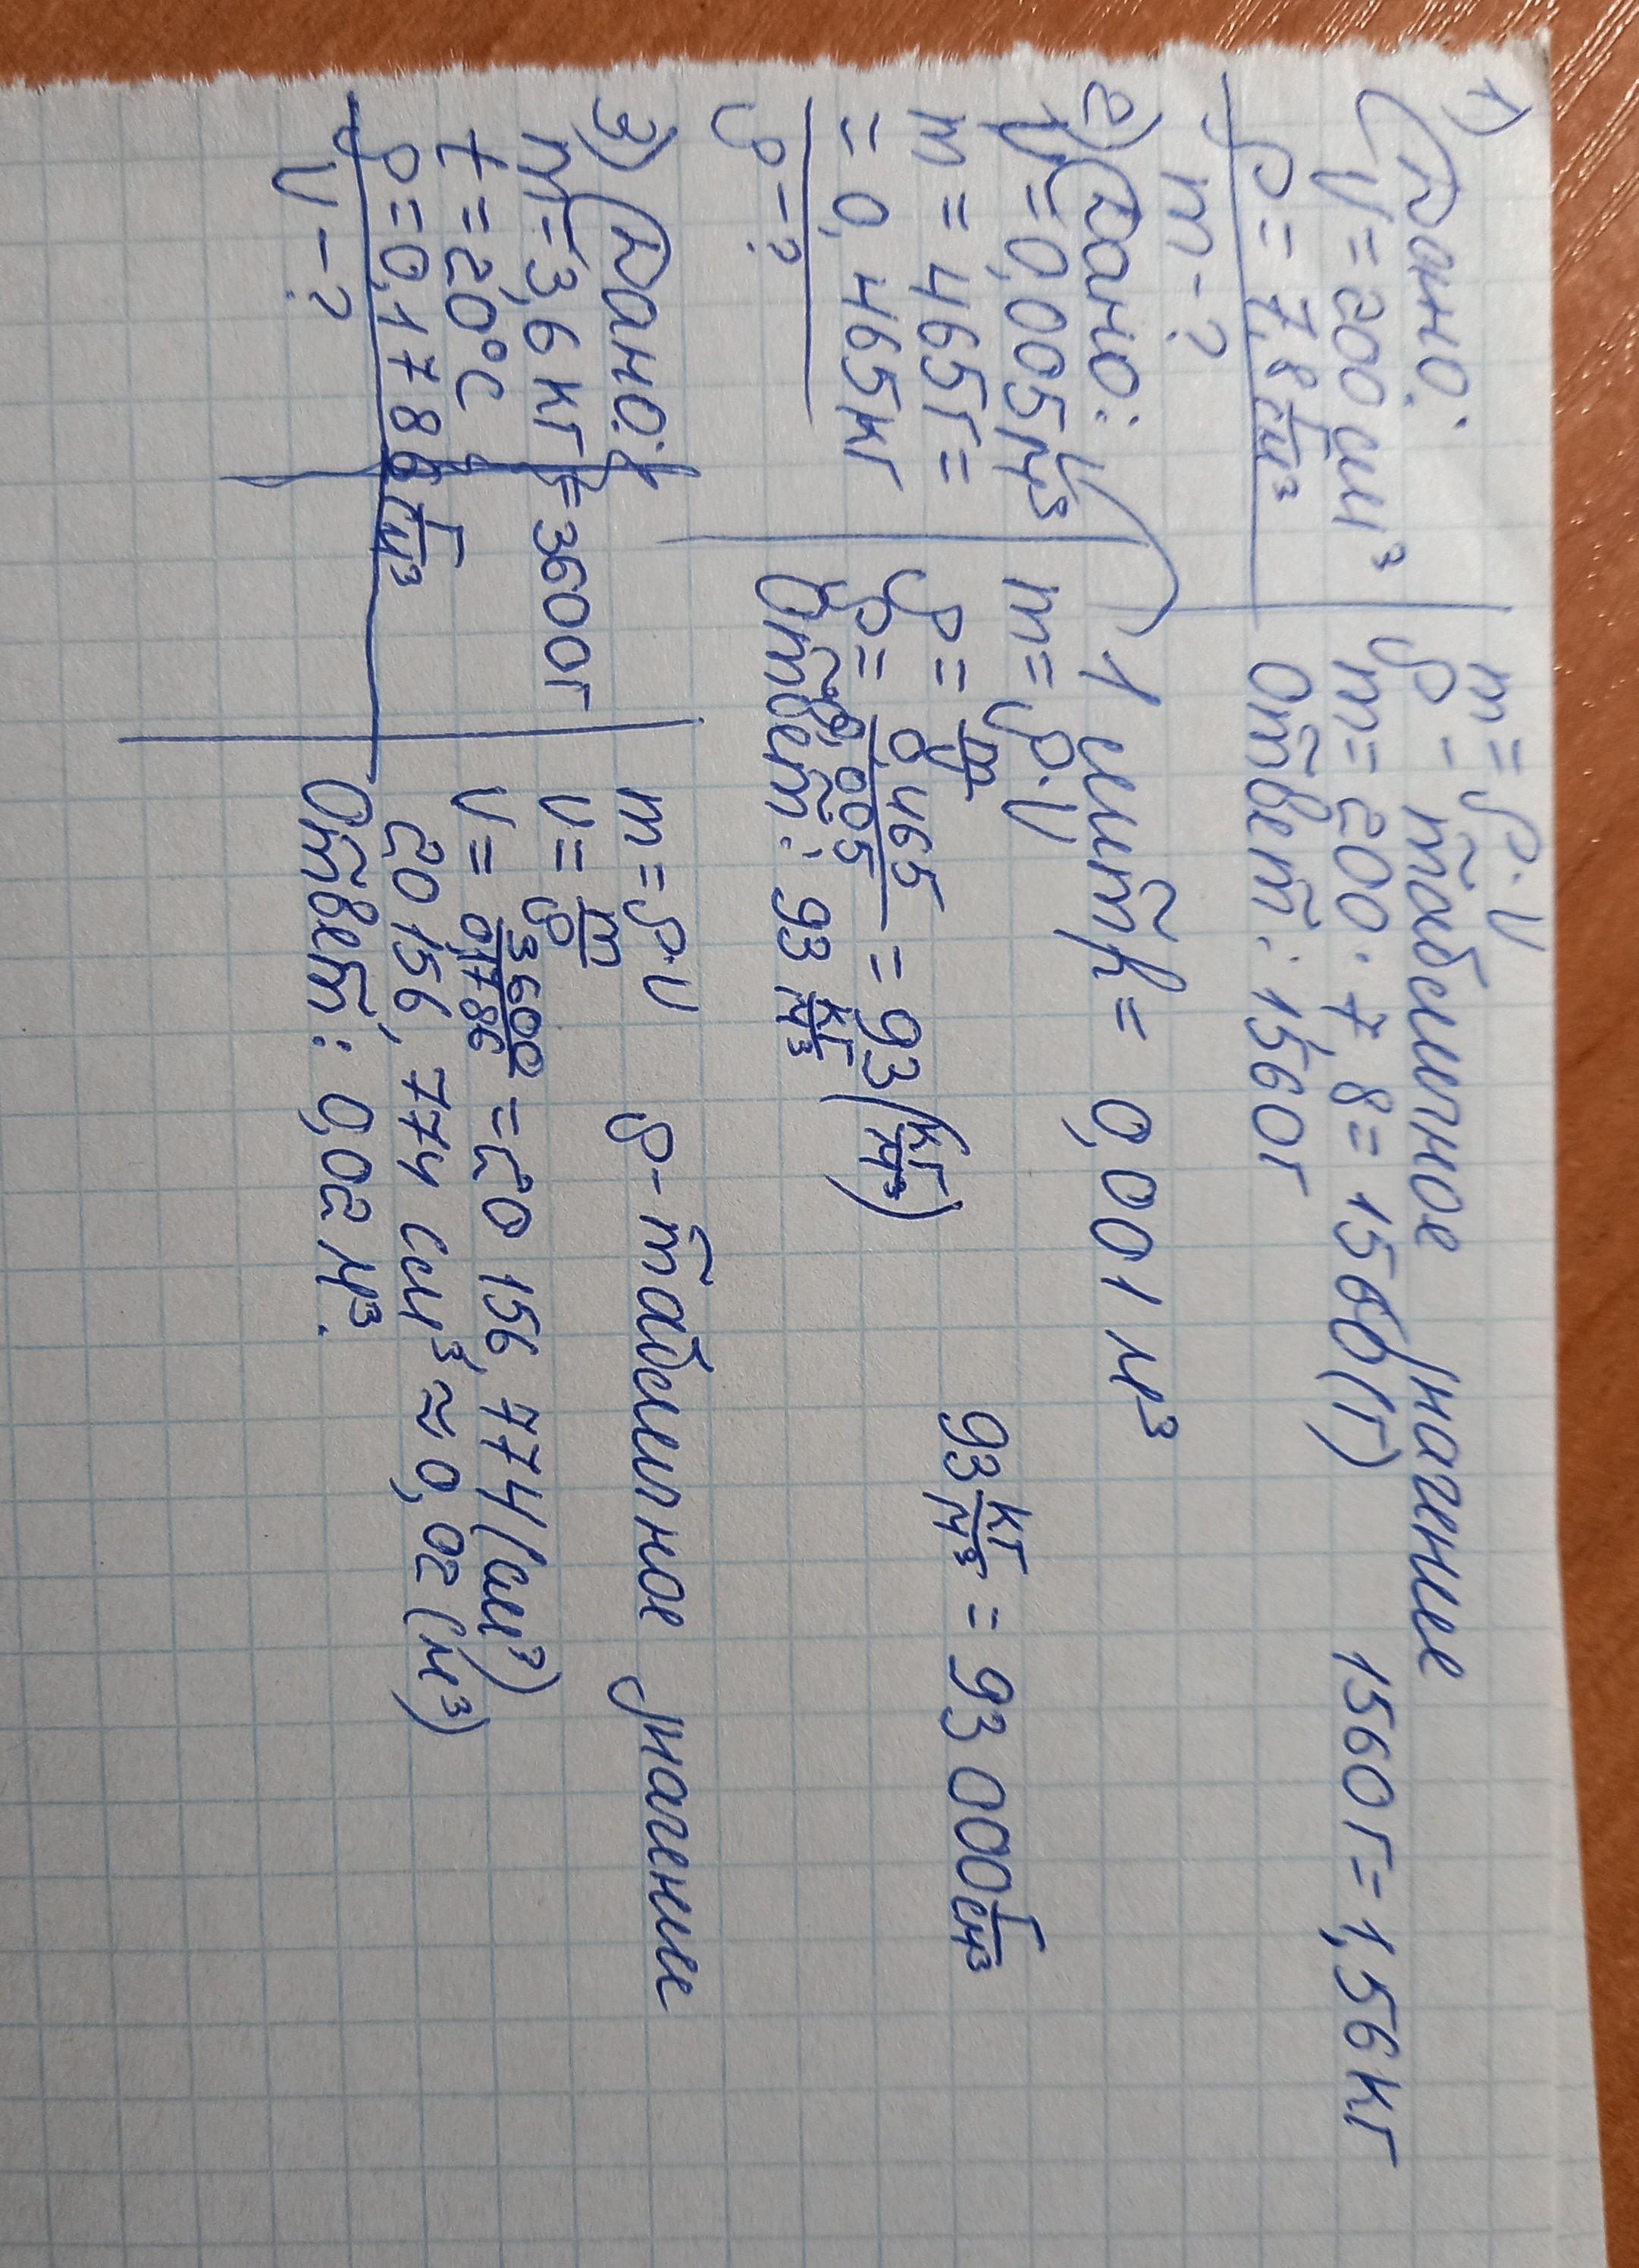 1) Дано:
V = 200 см³
ρ = 7,8 г/см³
m - ?
m = ρ·V
ρ - табличное значение
m = 200 · 7,8 = 1560 (г) 1560 г = 1,56 кг
Ответ: 1560 г
2) Дано:
V = 0,005 м³
m = 465 г =
= 0,465 кг
ρ - ?
1 литр = 0,001 м³
m = ρ·V
ρ = m/V 93 кг/м³ = 93 000 г/см³
ρ = 0,465/0,005 = 93 (кг/м³)
Ответ: 93 кг/м³
3) Дано:
m = 3,6 кг = 3600 г
t = 20°C
ρ = 0,1786 г/см³
V - ?
m = ρ·V ρ - табличное значение
V = m/ρ
V = 3600/0,1786 = 20 156,774 (см³)
20 156,774 см³ ≈ 0,02 (м³)
Ответ: 0,02 м³.